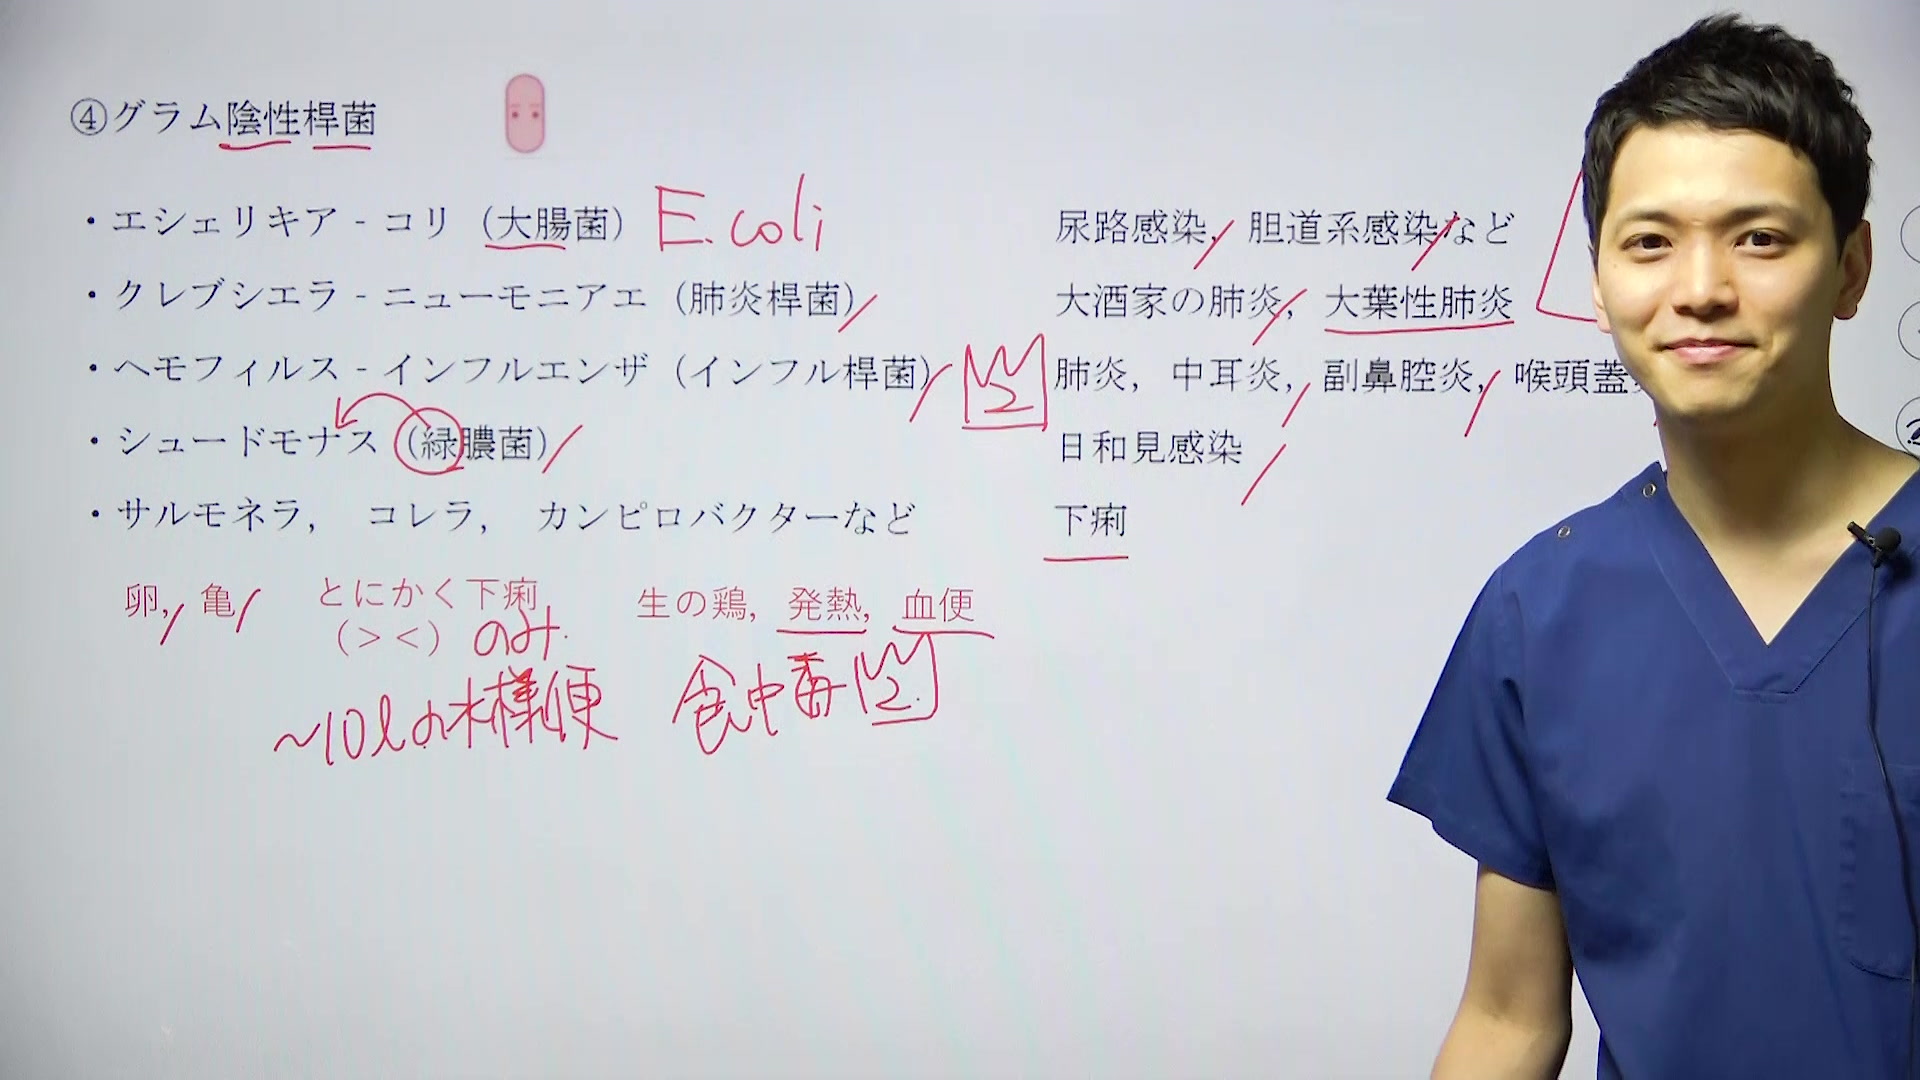 ④グラム陰性桿菌
・エシェリキア - コリ （大腸菌） E.coli 尿路感染, 胆道系感染など
・クレブシエラ - ニューモニアエ （肺炎桿菌） 大酒家の肺炎, 大葉性肺炎
・ヘモフィルス - インフルエンザ （インフル桿菌） 2 肺炎, 中耳炎, 副鼻腔炎, 喉頭蓋
・シュードモナス （緑膿菌） 日和見感染
・サルモネラ, コレラ, カンピロバクターなど 下痢
卵, 亀 とにかく下痢 生の鶏, 発熱, 血便
（＞＜） のみ.
~10lの水様便 食中毒 2